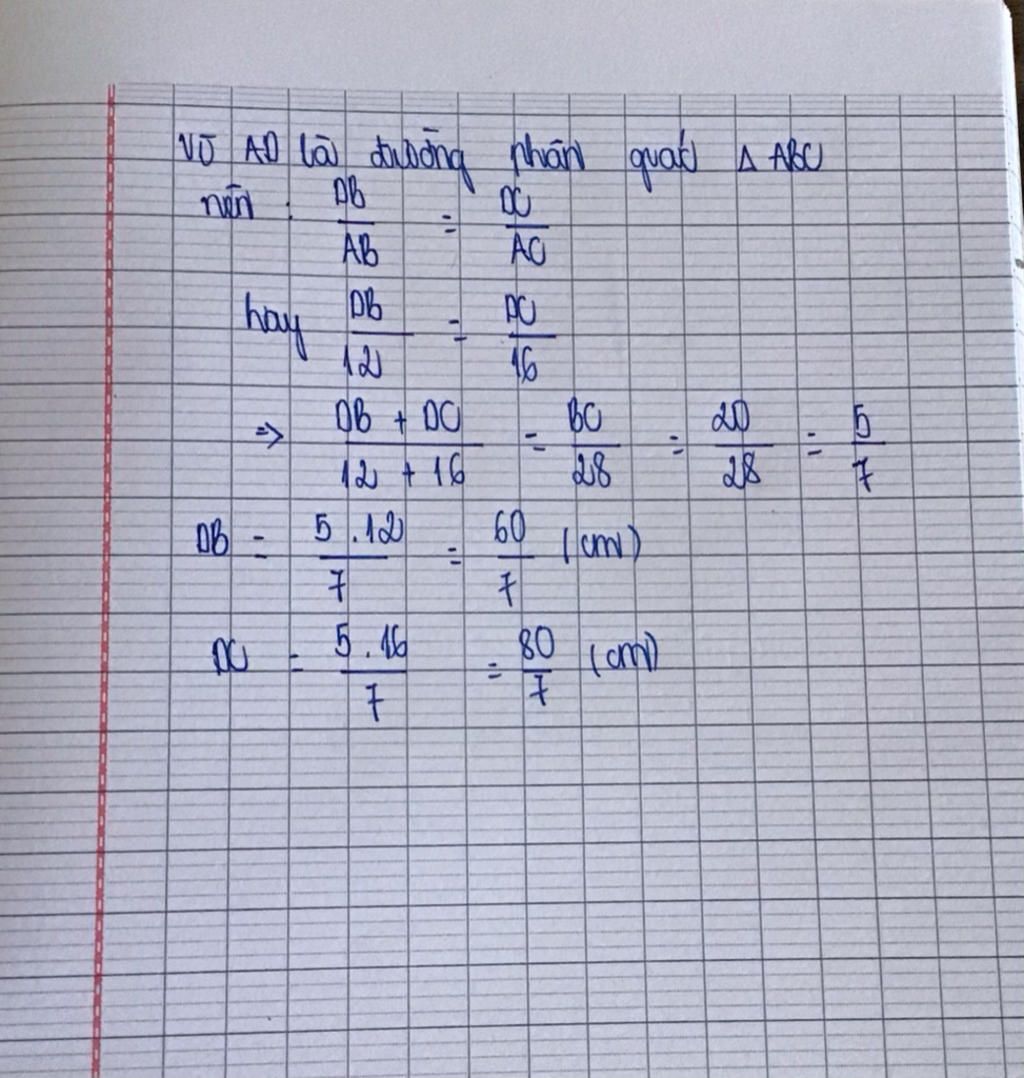 Vì AD là đường phân giác Δ ABC
nên : DB/AB = DC/AC
hay DB/12 = DC/16
⇒ (DB + DC)/(12 + 16) = BC/28 = 20/28 = 5/7
DB = (5.12)/7 = 60/7 (cm)
DC = (5.16)/7 = 80/7 (cm)